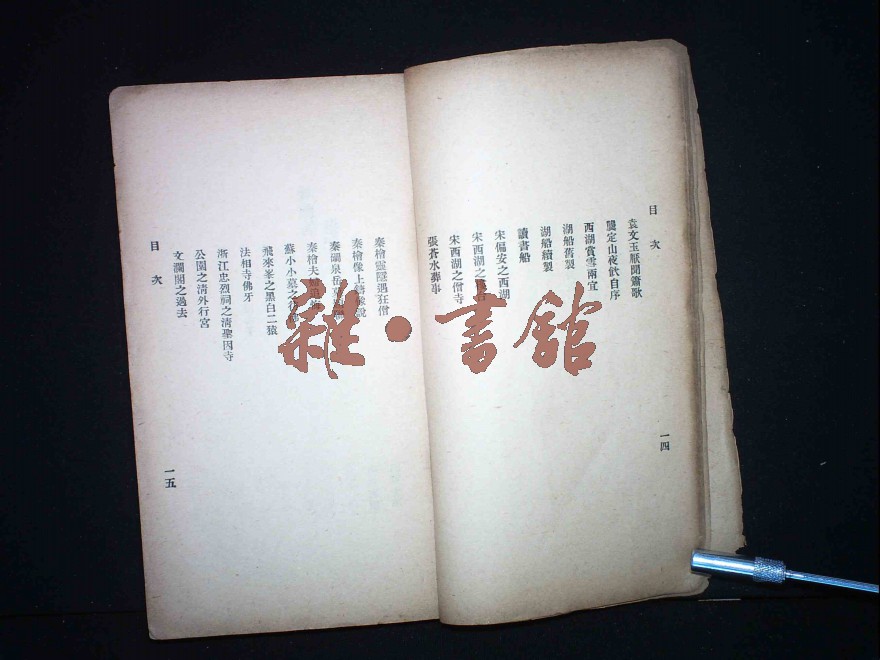 目次
袁文玉厭聞簫歌
龔定山夜飲自序
西湖賞雪兩宜
湖船舊製
湖船續製
讀書船
宋偏安之西湖
宋西湖之
宋西湖之僧寺
張蒼水葬事
一四
秦檜靈隱遇狂僧
秦檜像上
秦澗泉岳
秦檜夫
蘇小小墓之
飛來峯之黑白二猿
法相寺佛牙
浙江忠烈祠之清聖因寺
公園之清外行宮
文瀾閣之過去
目次
一五
雜·書館